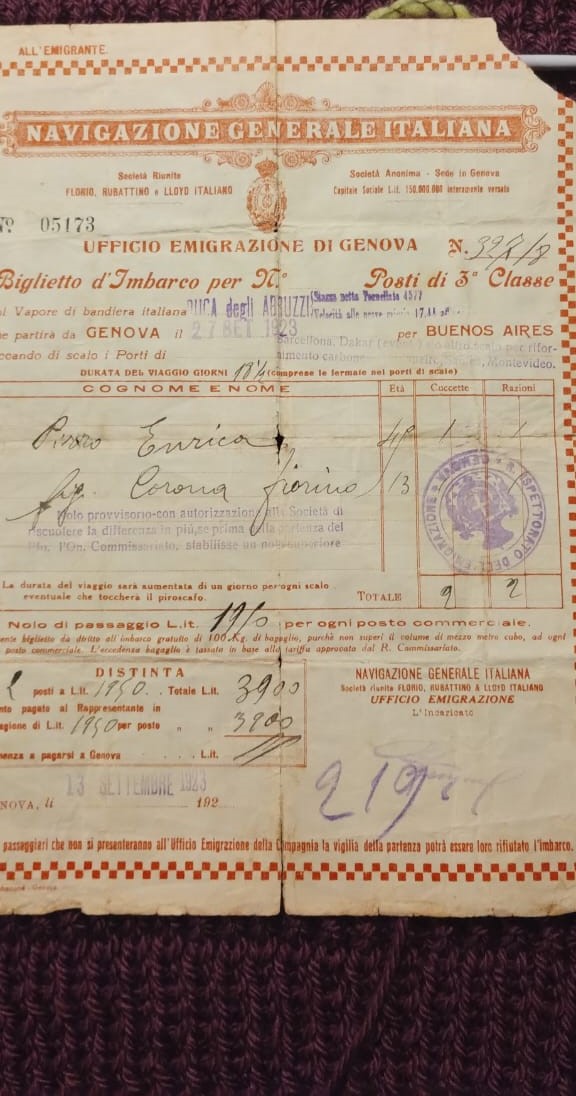 ALL'EMIGRANTE.
NAVIGAZIONE GENERALE ITALIANA
Società Riunite
FLORIO, RUBATTINO e LLOYD ITALIANO
Società Anonima - Sede in Genova
Capitale Sociale L.it. 150.000.000 interamente versato
Nº 05173
UFFICIO EMIGRAZIONE DI GENOVA N.
Biglietto d'Imbarco per N.º Posti di 3ª Classe
Vapore di bandiera italiana DUCA degli ABRUZZI Stazza netta
partirà da GENOVA il 27 SET 1923 per BUENOS AIRES
Barcellona, Dakar altro scalo per rifor-
toccando di scalo i Porti di nimento carbone Santos, Montevideo.
DURATA DEL VIAGGIO GIORNI 18½ (comprese le fermate nei porti di scalo)
COGNOME E NOME Età Cuccette Razioni
Enrica 1 1
Corona 13
Nolo provvisorio-con autorizzazione alla Società di
riscuotere la differenza in più, se prima della partenza del
l'On. Commissariato, stabilisse un nolo superiore
R. ISPETTORATO DELL'EMIGRAZIONE GENOVA
La durata del viaggio sarà aumentata di un giorno per ogni scalo
eventuale che toccherà il piroscafo.
TOTALE 2 2
Nolo di passaggio L.it. 1950 per ogni posto commerciale.
biglietto dà diritto all'imbarco gratuito di 100 Kg. di bagaglio, purchè non superi il volume di mezzo metro cubo, ad ogni
posto commerciale. L'eccedenza bagaglio è tassata in base alla tariffa approvata dal R. Commissariato.
DISTINTA
2 posti a L.it. 1950 Totale L.it. 3900
pagato al Rappresentante in
ragione di L.it. 1950 per posto " " 3900
a pagarsi a Genova L.it.
NAVIGAZIONE GENERALE ITALIANA
Società riunite FLORIO, RUBATTINO & LLOYD ITALIANO
UFFICIO EMIGRAZIONE
L'Incaricato
13 SETTEMBRE 1923
GENOVA, li 192
passeggieri che non si presenteranno all'Ufficio Emigrazione della Compagnia la vigilia della partenza potrà essere loro rifiutato l'imbarco.